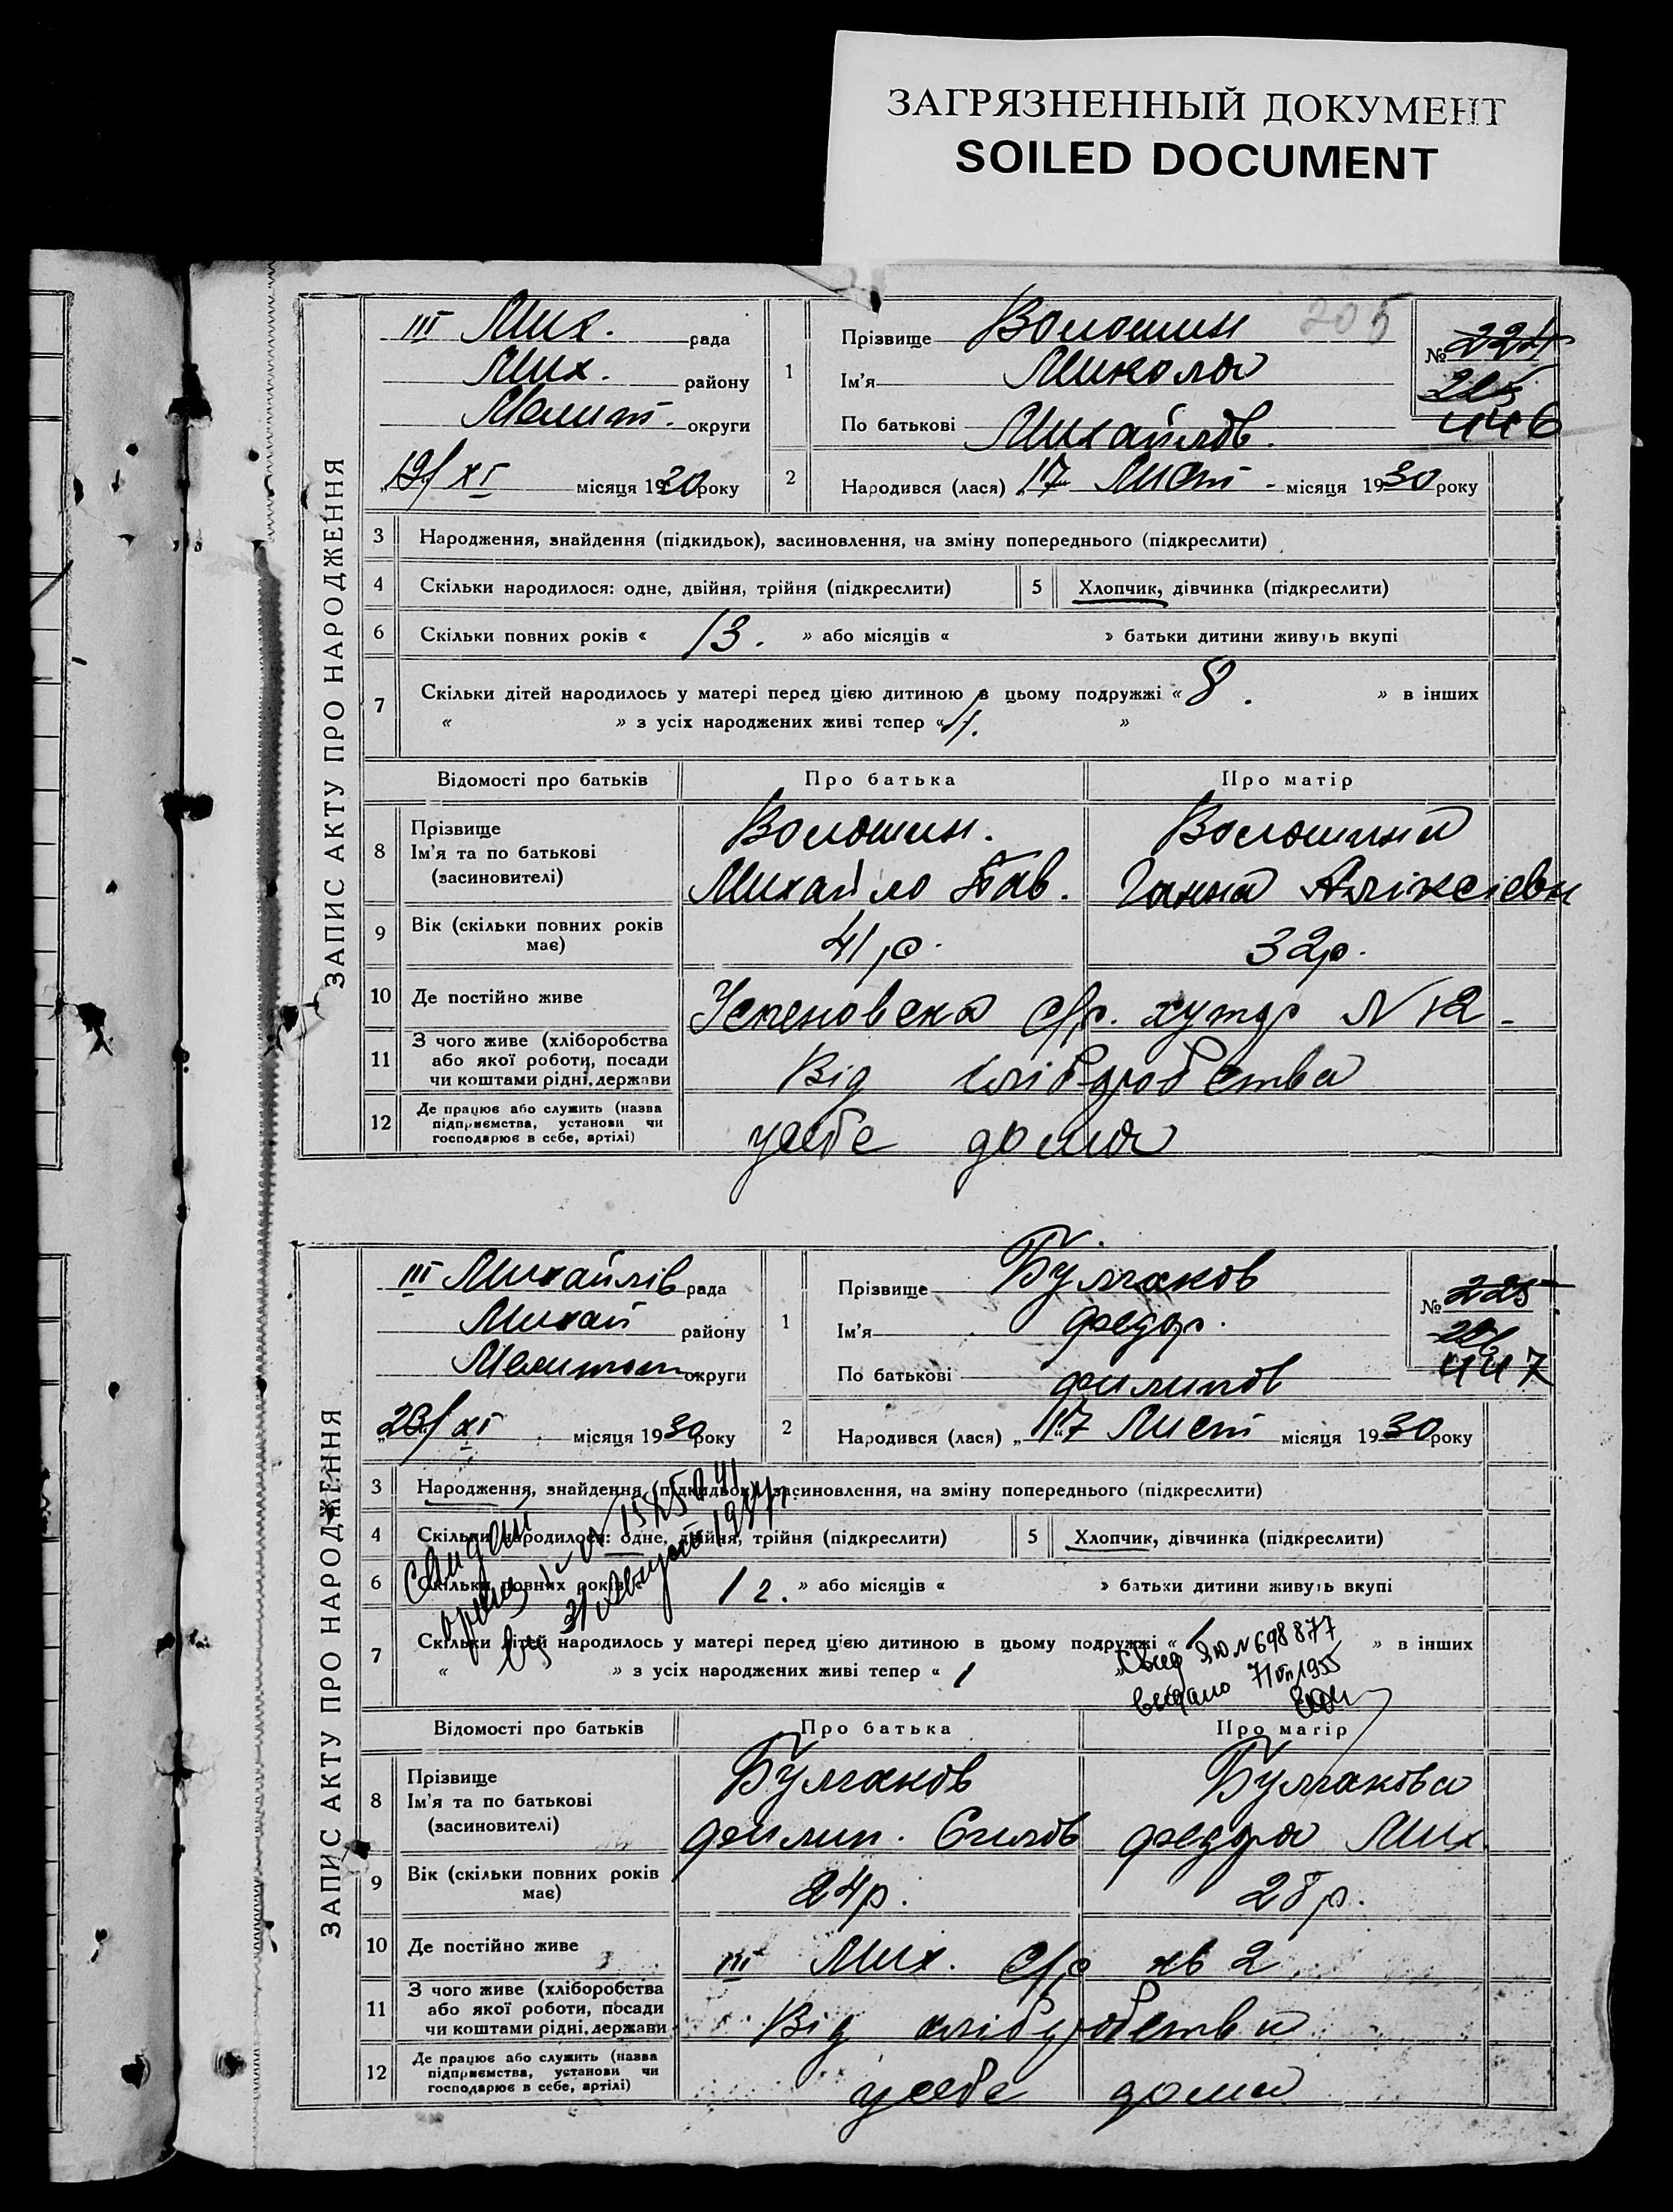 ЗАГРЯЗНЕННЫЙ ДОКУМЕНТ
SOILED DOCUMENT
ЗАПИС АКТУ ПРО НАРОДЖЕННЯ
III Мих. рада
Мих. району
Меліт. округи
19/XI місяця 1930 року
1 Прізвище Волошин 205
Ім'я Микола
По батькові Михайлов.
№ 224
225
446
2 Народився (лася) „17 Лист - місяця 1930 року
3 Народження, знайдення (підкидьок), засиновлення, на зміну попереднього (підкреслити)
4 Скільки народилося: одне, двійня, трійня (підкреслити) 5 Хлопчик, дівчинка (підкреслити)
6 Скільки повних років « 13. » або місяців « » батьки дитини живуть вкупі
7 Скільки дітей народилось у матері перед цією дитиною в цьому подружжі « 8. » в інших
« » з усіх народжених живі тепер « »
Відомості про батьків Про батька Про матір
8 Прізвище Волошин. Волошина
Ім'я та по батькові
(засиновителі) Михайло Пав. Ганна Аліксіевн
9 Вік (скільки повних років має) 41 р. 32р.
10 Де постійно живе Успеновска с/р. хутор N 12 -
11 З чого живе (хліборобства
або якої роботи, посади
чи коштами рідні, держави Від хліборобства
12 Де працює або служить (назва
підприємства, установи чи
господарює в себе, артілі) усебе дома
ЗАПИС АКТУ ПРО НАРОДЖЕННЯ
III Михайлів рада
Михай району
Мелитоп округи
20/XI місяця 1930 року
1 Прізвище Булгаков
Ім'я Федор.
По батькові Филипов
№ 225
226
447
2 Народився (лася) „17 Лист місяця 1930 року
3 Народження, знайдення (підкидьок), засиновлення, на зміну попереднього (підкреслити)
4 Скільки народилося: одне, двійня, трійня (підкреслити) 5 Хлопчик, дівчинка (підкреслити)
6 Скільки повних років « 12. » або місяців « » батьки дитини живуть вкупі
31 Августа
7 Скільки дітей народилось у матері перед цією дитиною в цьому подружжі « » в інших
« » з усіх народжених живі тепер « 1 »
Свид ЯЮ N 698877
выдано 7/VII 1955
Відомості про батьків Про батька Про матір
8 Прізвище Булгаков Булгакова
Ім'я та по батькові
(засиновителі) Филип. Федора Мих.
9 Вік (скільки повних років має) 24р. 28р.
10 Де постійно живе III Мих. с/р кв 2
11 З чого живе (хліборобства
або якої роботи, посади
чи коштами рідні, держави Від хліборобства
12 Де працює або служить (назва
підприємства, установи чи
господарює в себе, артілі) усебе дома